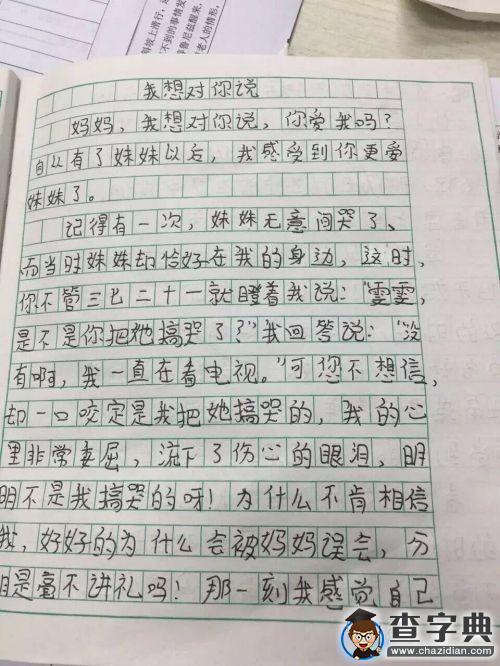 我想对你说
妈妈，我想对你说，你爱我吗？
自从有了妹妹以后，我感受到你更爱
妹妹了。
记得有一次，妹妹无意间哭了、
而当时妹妹却恰好在我的身边，这时，
你不管三七二十一就瞪着我说：“雯雯，
是不是你把她搞哭了？”我回答说：“没
有啊，我一直在看电视。”可您不想信，
却一口咬定是我把她搞哭的，我的心
里非常委屈，流下了伤心的眼泪，明
明不是我搞哭的呀！为什么不肯相信
我，好好的为什么会被妈妈误会，分
明是毫不讲礼吗！那一刻我感觉自己
查字典
www.chazidian.com